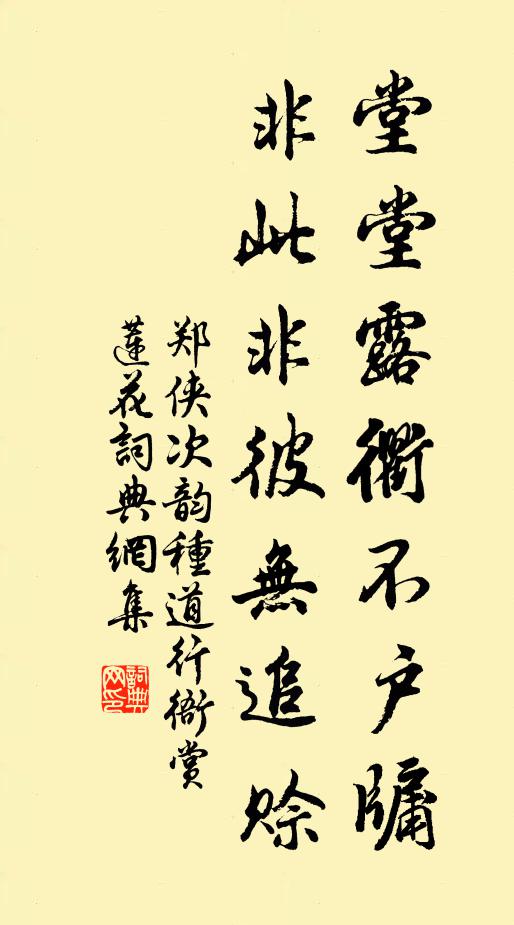 堂堂露衢不户牖
非此非彼無追賒
郑侠次韵種道行衙賞
蓮花詞典網集
詞典网印